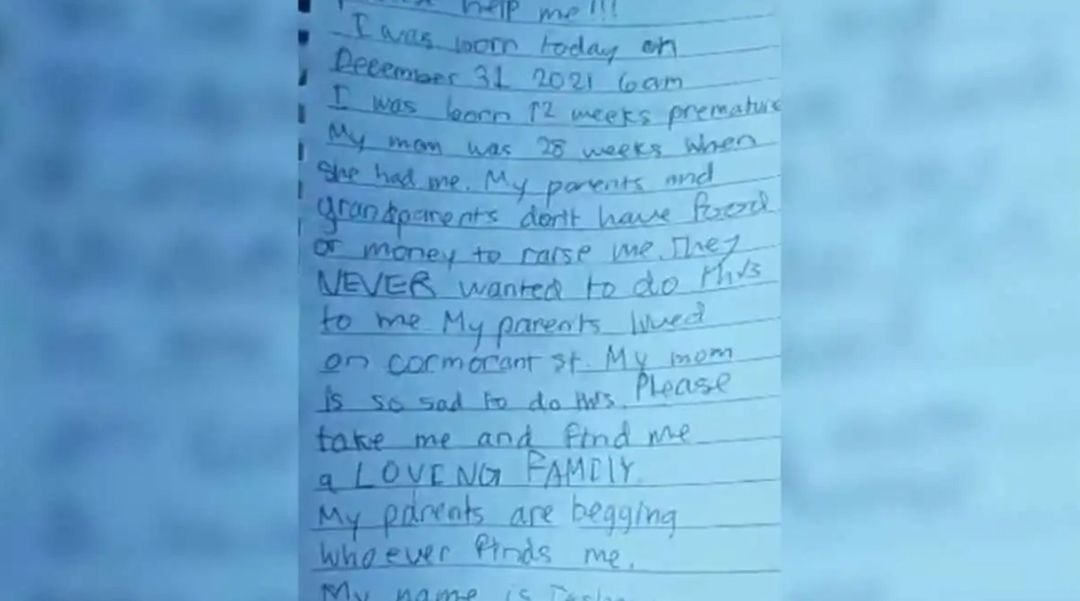 help me!!!
I was born today on
December 31 2021 6am
I was born 12 weeks premature
My mom was 28 weeks when
she had me. My parents and
grandparents don't have food
or money to raise me. They
NEVER wanted to do this
to me My parents lived
on cormorant st. My mom
is so sad to do this. Please
take me and find me
a LOVING FAMILY.
My parents are begging
whoever finds me.
My name is